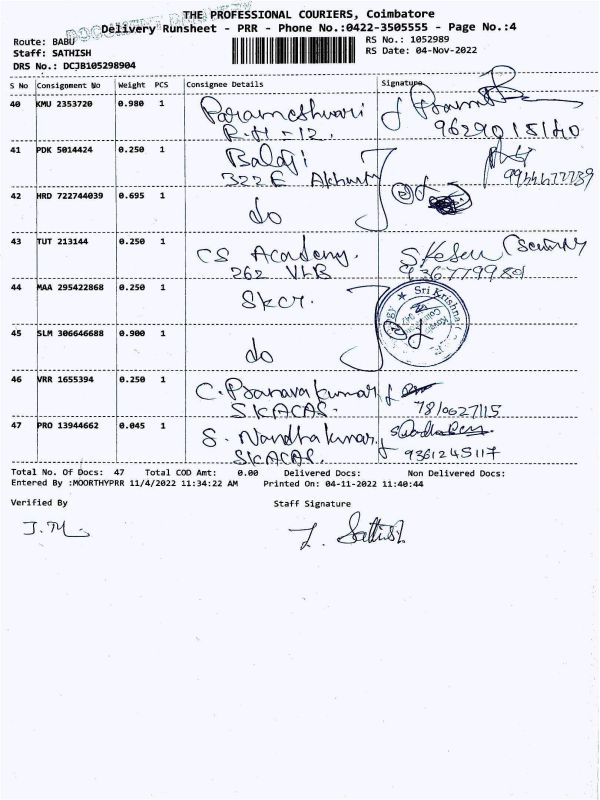 THE PROFESSIONAL COURIERS, Coimbatore
Delivery Runsheet - PRR - Phone No.:0422-3505555 - Page No.:4
Route: BABU
RS No.: 1052989
Staff: SATHISH
RS Date: 04-Nov-2022
DRS No.: DCJB105298904
S No Consignment No Weight PCS Consignee Details Signature
40 KMU 2353720 0.980 1 Parameshwari
R.H-12. 9629015140
41 PDK 5014424 0.250 1 Balaji
322 E
42 HRD 722744039 0.695 1 do
43 TUT 213144 0.250 1 CS Academy.
262 VLB 9367799801
44 MAA 295422868 0.250 1 Skcr. Sri Krishna
45 SLM 306646688 0.900 1 do
46 VRR 1655394 0.250 1 C. Pranavakumar
SKACAS. 7810627115
47 PRO 13944662 0.045 1 S. Nandhakumar
SKACAS. 9361245117
Total No. Of Docs: 47 Total COD Amt: 0.00 Delivered Docs: Non Delivered Docs:
Entered By :MOORTHYPRR 11/4/2022 11:34:22 AM Printed On: 04-11-2022 11:40:44
Verified By Staff Signature
J.M. L. Sathish